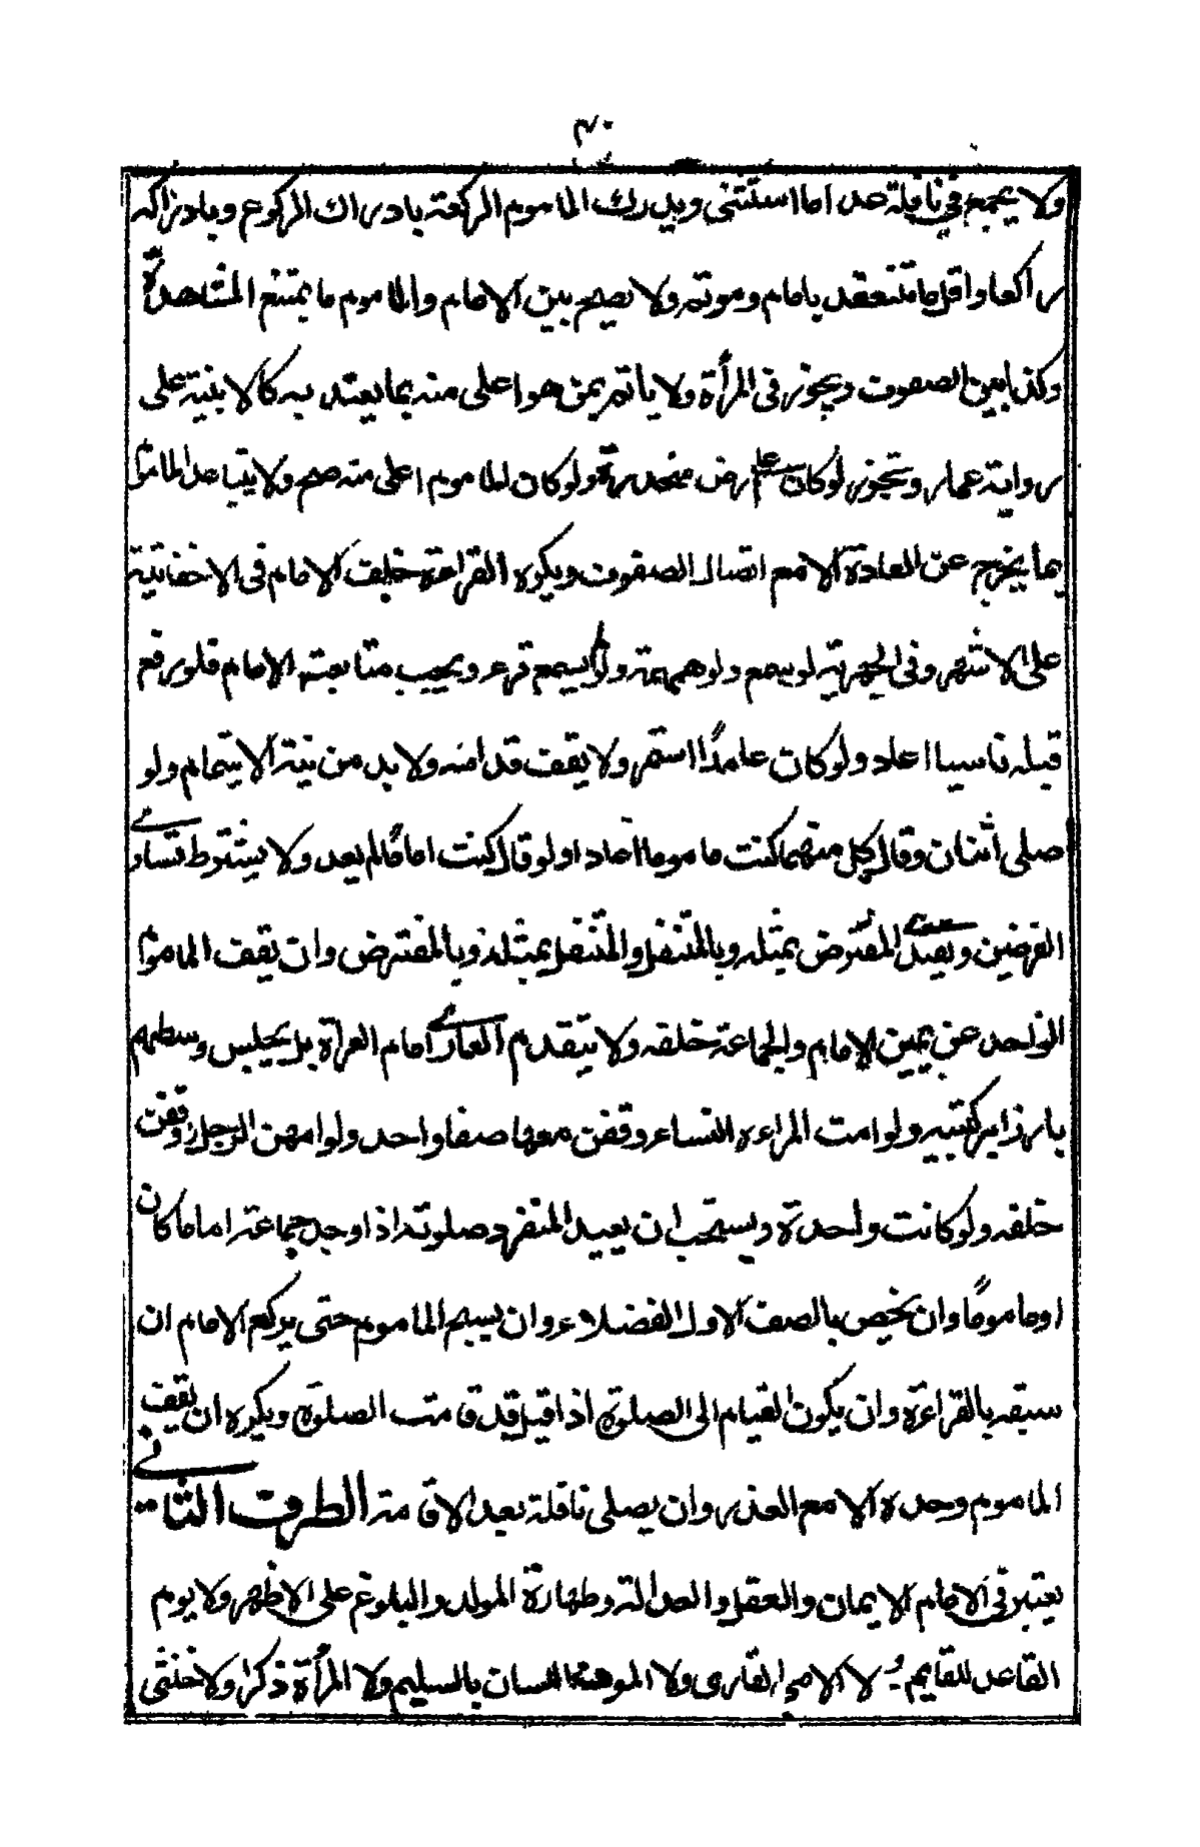 ٣٠
ولا يجمع في نافلة عدا ما استثنى ويدرك الماموم الركعة بادراك الركوع وبادراكه
راكعا واقل ما تنعقد بامام وموتم ولا يصح بين الامام والماموم ما يمتنع المشاهدة
وكذا بين الصفوف ويجوز في المرأة ولا ياتم بمن هو اعلى منه بما يعتد به كالابنية على
رواية عمار ويجوز لو كان على ارض منحدرة ولو كان الماموم اعلى منه صح ولا يتباعد الماموم
بما يخرج عن العادة الا مع اتصال الصفوف ويكره القراءة خلف الامام في الاخفاتية
على الاشهر وفي الجهرية لو سمع ولو همهمة ولو لم يسمع قرء ويجب متابعة الامام فلو رفع
قبله ناسيا اعاد ولو كان عامدًا استمر ولا يقف قدامه ولا بد من نية الايتمام ولو
صلى اثنان وقال كل منهما كنت ماموما اعاد او لو قال كنت امامًا لم يعد ولا يشترط تساوي
الفرضين ويقتدي المفترض بمثله وبالمتنفل والمتنفل بمثله وبالمفترض وان يقف الماموم
الواحد عن يمين الامام والجماعة خلفه ولا يتقدم العاري امام العراة بل يجلس وسطهم
بارزا بركبتيه ولو امت المراءة النساء وقفن معها صفا واحد ولو امهن الرجل وقفن
خلفه ولو كانت واحدة ويستحب ان يعيد المنفرد صلوته اذا وجد جماعة اماما كان
او مامومًا وان يخص بالصف الاول الفضلاء وان يسبح الماموم حتى يركع الامام ان
سبقه بالقراءة وان يكون القيام الى الصلوة اذا قيل قد قامت الصلوة ويكره ان يقف
الماموم وحده الا مع العذر وان يصلى نافلة بعد الاقامة الطرف الثاني
يعتبر في الامام الايمان والعقل والعدالة وطهارة المولد والبلوغ على الاظهر ولا يوم
القاعد للقايم ولا الامي القارى ولا الموف اللسان بالسليم ولا المرأة ذكرا ولا خنثى